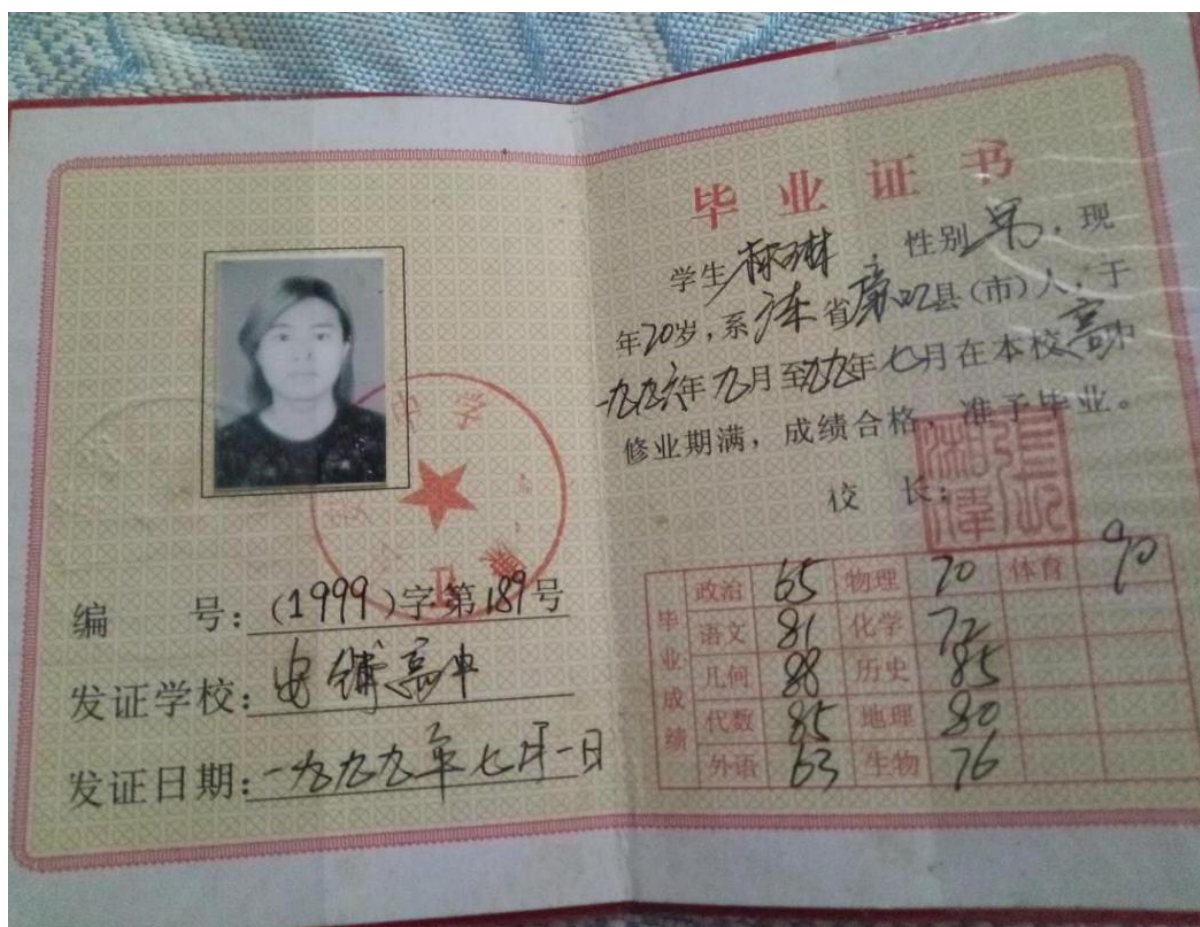 编 号：(1999)字第189号
发证学校：安铺高中
发证日期：一九九九年七月一日
毕业证书
学生 琳，性别男，现
年20岁，系广东省廉江县(市)人，于
一九九六年九月至九九年七月在本校高中
修业期满，成绩合格，准予毕业。
校 长：
毕业成绩
政治 65 物理 70 体育 90
语文 81 化学 72
几何 88 历史 85
代数 85 地理 80
外语 63 生物 76